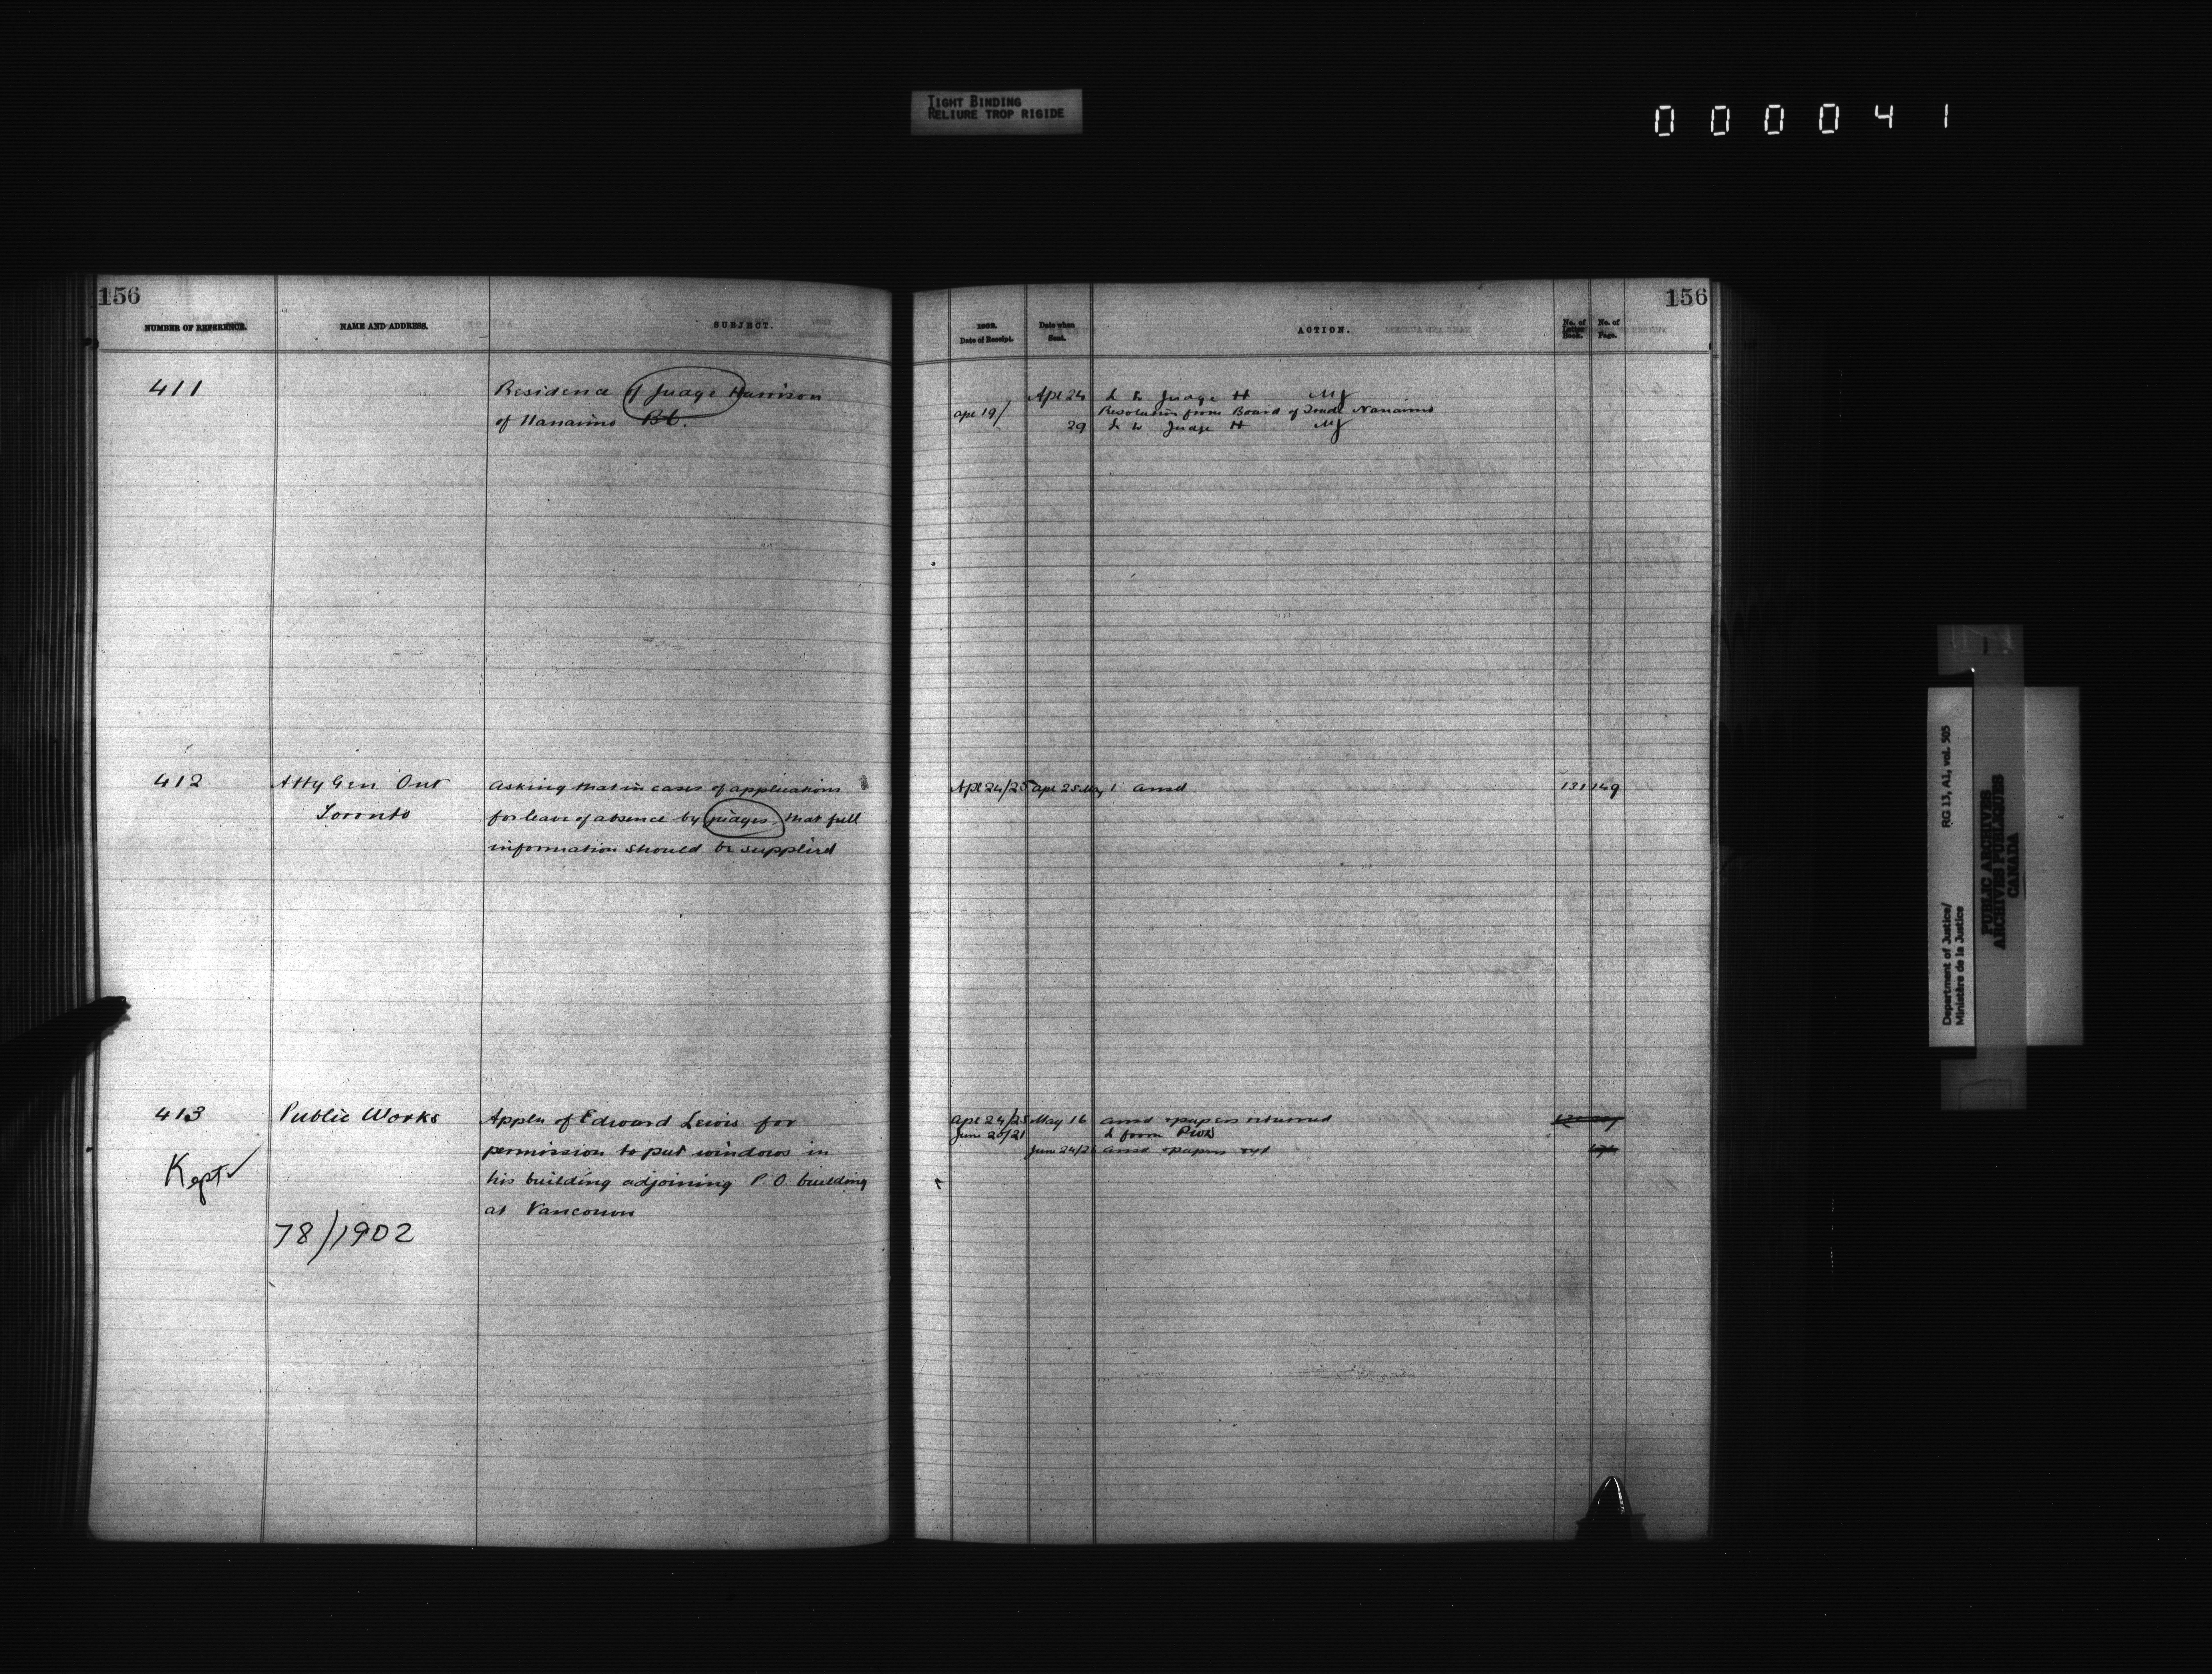 TIGHT BINDING
RELIURE TROP RIGIDE
000041
156
NUMBER OF REFERENCE.
NAME AND ADDRESS.
SUBJECT.
411
Residence of Judge Harrison
of Nanaimo B.C.
412
Atty Gen Ont
Toronto
Asking that in cases of applications
for leave of absence by judges, that full
information should be supplied
413
Public Works
Kept
78/1902
Appln of Edward Lewis for
permission to put windows in
his building adjoining P.O. building
at Vancouver
156
1902.
Date of Receipt.
Date when
Sent.
ACTION.
No. of
Letter
Book.
No. of
Page.
Apl 24 L to Judge H MJ
Apl 19/ Resolution from Board of Trade Nanaimo
29 L to Judge H MJ
Apl 24/25 Apl 25 May 1 ansd 131 149
Apl 24/25 May 16 ansd & papers returned
June 20/21 L from PWD
June 24/26 ansd & papers
Department of Justice/
Ministère de la Justice
RG 13, A1, vol. 505
PUBLIC ARCHIVES
ARCHIVES PUBLIQUES
CANADA